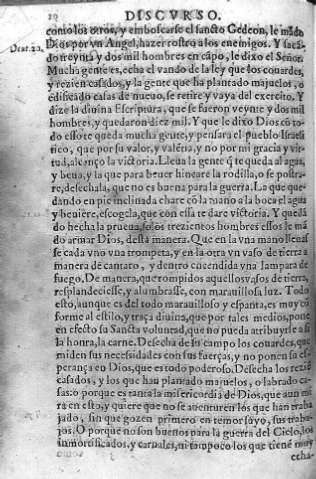 20 DISCVRSO.
como los otros, y emboscarse el sancto Gedeon, le mãdo
Deut. 20. Dios por vn Angel, hazer rostro a los enemigos. Y sacã-
do treynta y dos mil hombres en cãpo, le dixo el Señor.
Mucha gente es, echa el vando de la ley que los couardes,
y rezien casados, y la gente que ha plantado majuelos, o
edificado casas de nueuo, se retire y vaya del exercito. Y
dize la diuina Escriptura, que se fueron veynte y dos mil
hombres, y quedaron diez mil. Y que le dixo Dios cõ to-
do esso te queda mucha gente, y pensara el pueblo Israeli
tico, que por su valor, y valẽtia, y no por mi gracia y vir-
tud, alcanço la victoria. Lleua la gente q̃ te queda al agua,
y beua, y la que para beuer hincare la rodilla, o se postra-
re, dexechala, que no es buena para la guerra. La que que-
dando en pie inclinada chare cõ la mano a la boca el agua
y beuiere, escogela, que con essa te dare victoria. Y quedã
do hecha la prueua, solos trezientos hombres essos le mã
do armar Dios, desta manera. Que en la vna mano lleuas-
se cada vno vna trompeta, y en la otra vn vaso de tierra a
manera de cantaro, y dentro encendida vna lampara de
fuego. De manera, que rompidos aquellos vasos de tierra,
resplandeciesse, y alumbrasse, con marauillosa luz. Todo
esto, aunque es del todo marauilloso y espanta, es muy cõ
forme al estilo, y traça diuina, que por tales medios, pone
en efecto su Sancta voluntad, que no pueda atribuyrse a si
la honra, la carne. Desecha de su campo los couardes, que
miden sus necessidades con sus fuerças, y no ponen su es-
perança en Dios, que es todo poderoso. Desecha los reziẽ
casados, y los que han plantado majuelos, o labrado ca-
sas: o porque es tanta la misericordia de Dios, que aun mi
ra en esto, y quiere que no se auenturen los que han traba
jado, sin que gozen primero en temor suyo, sus traba-
jos. O porque no son buenos para la guerra del Cielo, los
inmortificados, y carnales, ni tampoco los que tienẽ muy
echa-